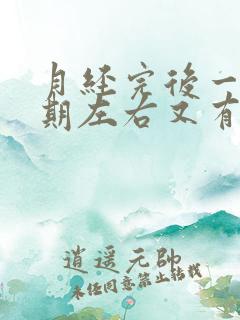 月經完後一
期左右又有
逍遥元帥
未经同意禁止转载